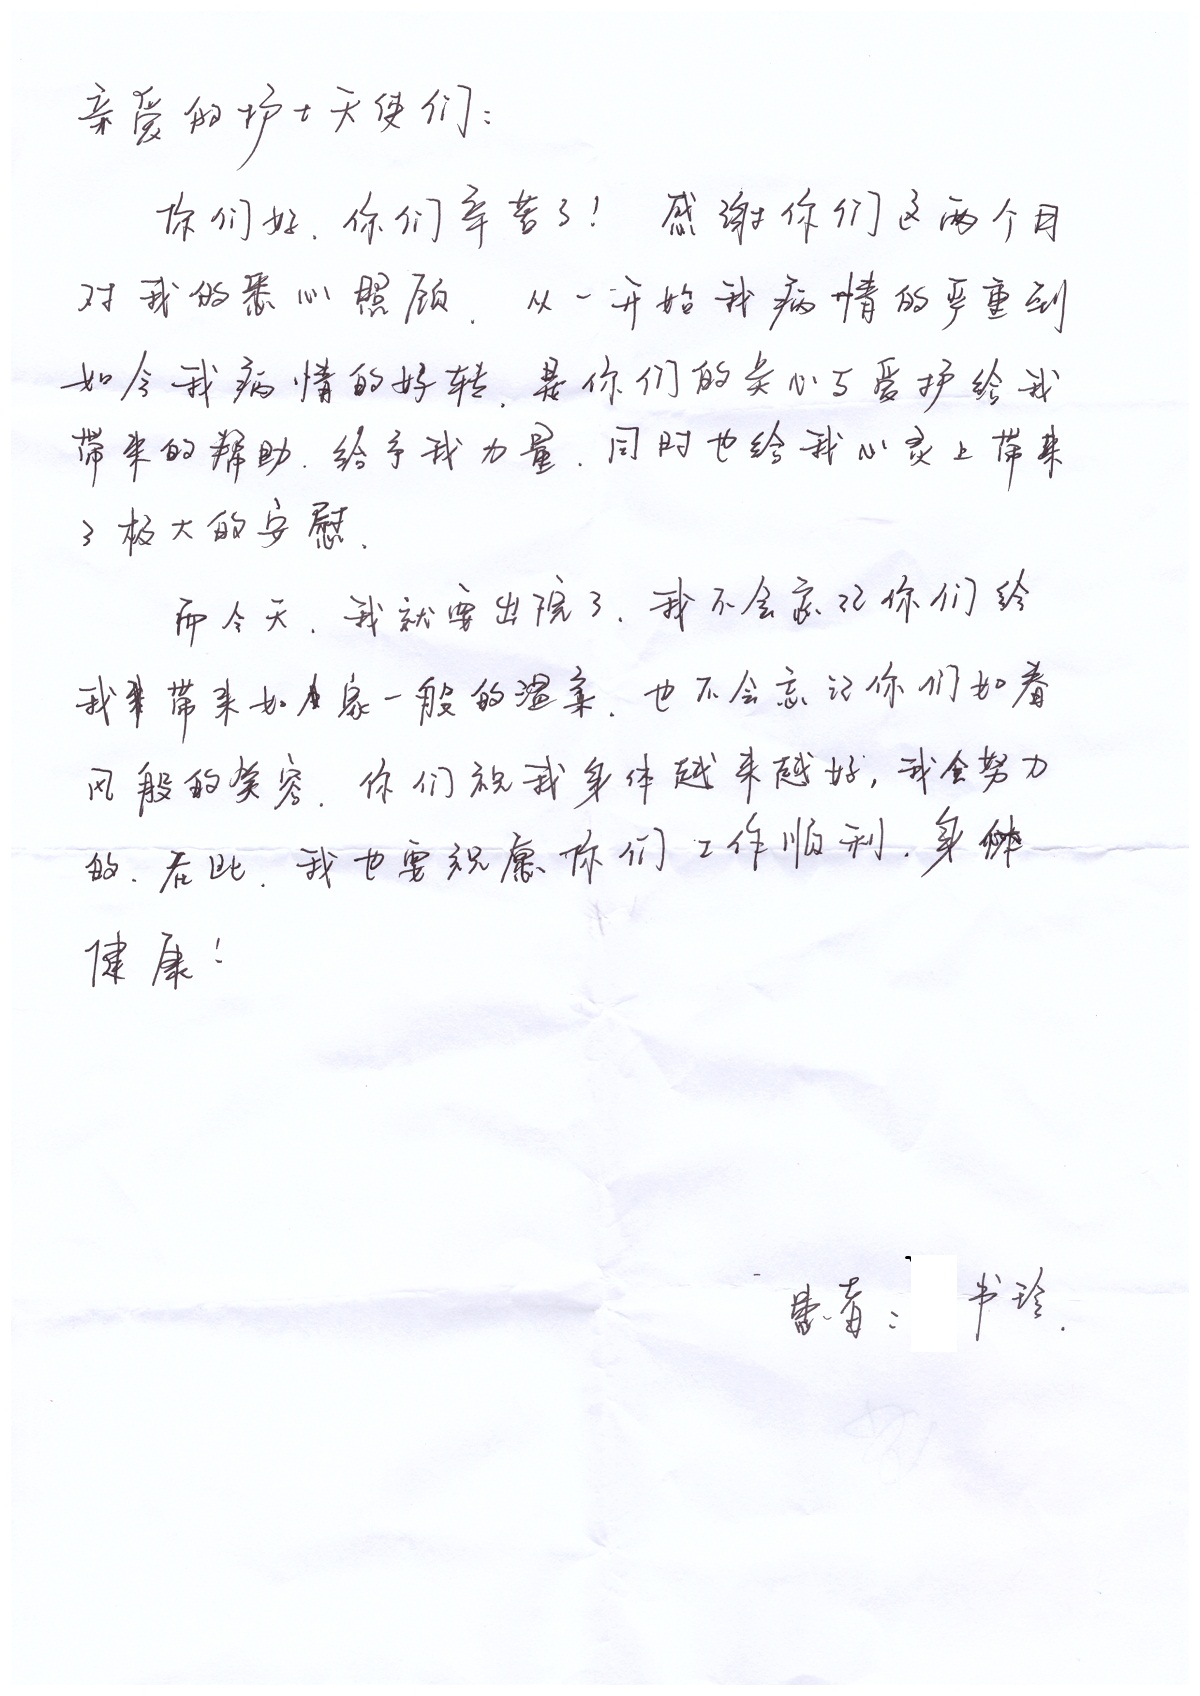 亲爱的护士天使们：
你们好，你们辛苦了！ 感谢你们这两个月
对我的悉心照顾，从一开始我病情的严重到
如今我病情的好转，是你们的关心与爱护给我
带来的帮助，给予我力量，同时也给我心灵上带来
了极大的安慰。
而今天，我就要出院了，我不会忘记你们给
我带来如家一般的温柔，也不会忘记你们如春
风般的笑容，你们祝我身体越来越好，我会努力
的，在此，我也要祝愿你们工作顺利，身体
健康！
患者： 书珍.